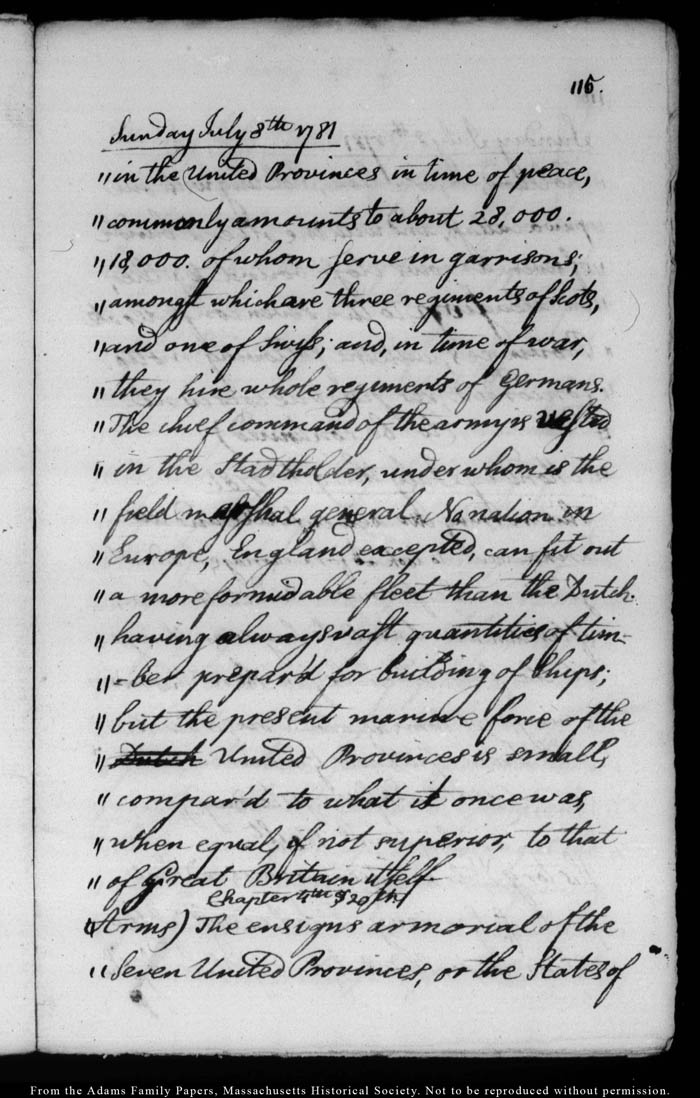 115.
Sunday July 8th 1781
"in the United Provinces in time of peace,
"commonly amounts to about 28,000.
"18,000. of whom serve in garrisons;
"amongst which are three regiments of Scots,
"and one of Swiss; and, in time of war,
"they hire whole regiments of Germans.
"The chief command of the army is vested
"in the Stadtholder, under whom is the
"field marshal general. No nation in
"Europe, England excepted, can fit out
"a more formidable fleet than the Dutch.
"having always vast quantities of tim-
"-ber prepar'd for building of Ships;
"but the present marine force of the
"Dutch United Provinces is small,
"compar'd to what it once was,
"when equal, if not superior, to that
"of Great Britain itself
Chapter 4th § 20th
"Arms) The ensigns armorial of the
"Seven United Provinces, or the States of
From the Adams Family Papers, Massachusetts Historical Society. Not to be reproduced without permission.